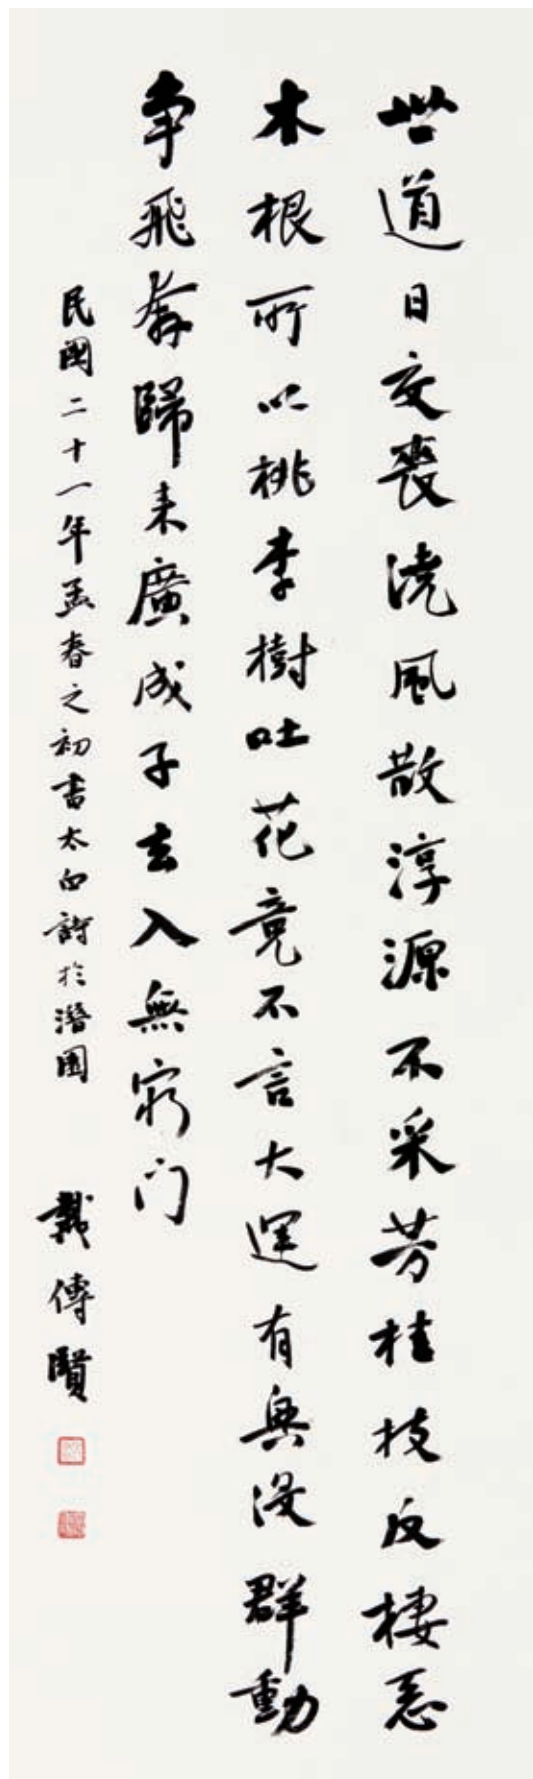 世道日交喪澆風散淳源不采芳桂枝反棲惡
木根所以桃李樹吐花竟不言大運有興沒群動
争飛奔歸来廣成子去入無窮门
民國二十一年孟春之初書太白詩於潛園
戴傳賢